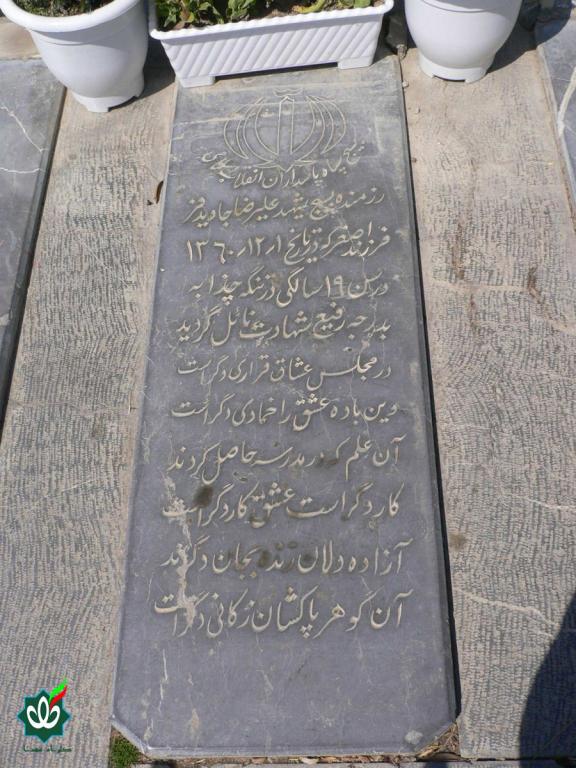 بسیج سپاه پاسداران انقلاب اسلامی
رزمنده بسیج شهید علیرضا جاویدفر
فرزند اصغر که در تاریخ ۱۳۶۰/۱۲/۱
در سن ۱۹ سالگی در تنگه چذابه
بدرجه رفیع شهادت نائل گردید
در مجلس عشاق قراری دگر است
وین باده عشق را خماری دگر است
آن علم که در مدرسه حاصل کردند
کار دگر است عشق کار دگر است
آزاده دلان زنده بجان دگرند
آن گوهر پاکشان ز کانی دگر است